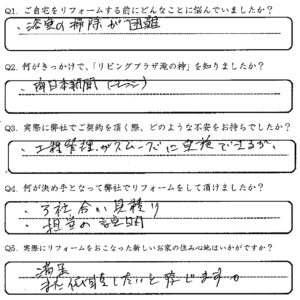 Q1. ご自宅をリフォームする前にどんなことに悩んでいましたか？
・浴室の掃除が困難
Q2. 何がきっかけで、「リビングプラザ滝の神」を知りましたか？
・南日本新聞(チラシ)
Q3. 実際に弊社でご契約を頂く際、どのような不安をお持ちでしたか？
・工程管理がスムーズに実施できるか、
Q4. 何が決め手となって弊社でリフォームをして頂けましたか？
・3社合い見積り
・担当の説明
Q5. 実際にリフォームをおこなった新しいお家の住み心地はいかがですか？
満足
また依頼をしたいと存じます。